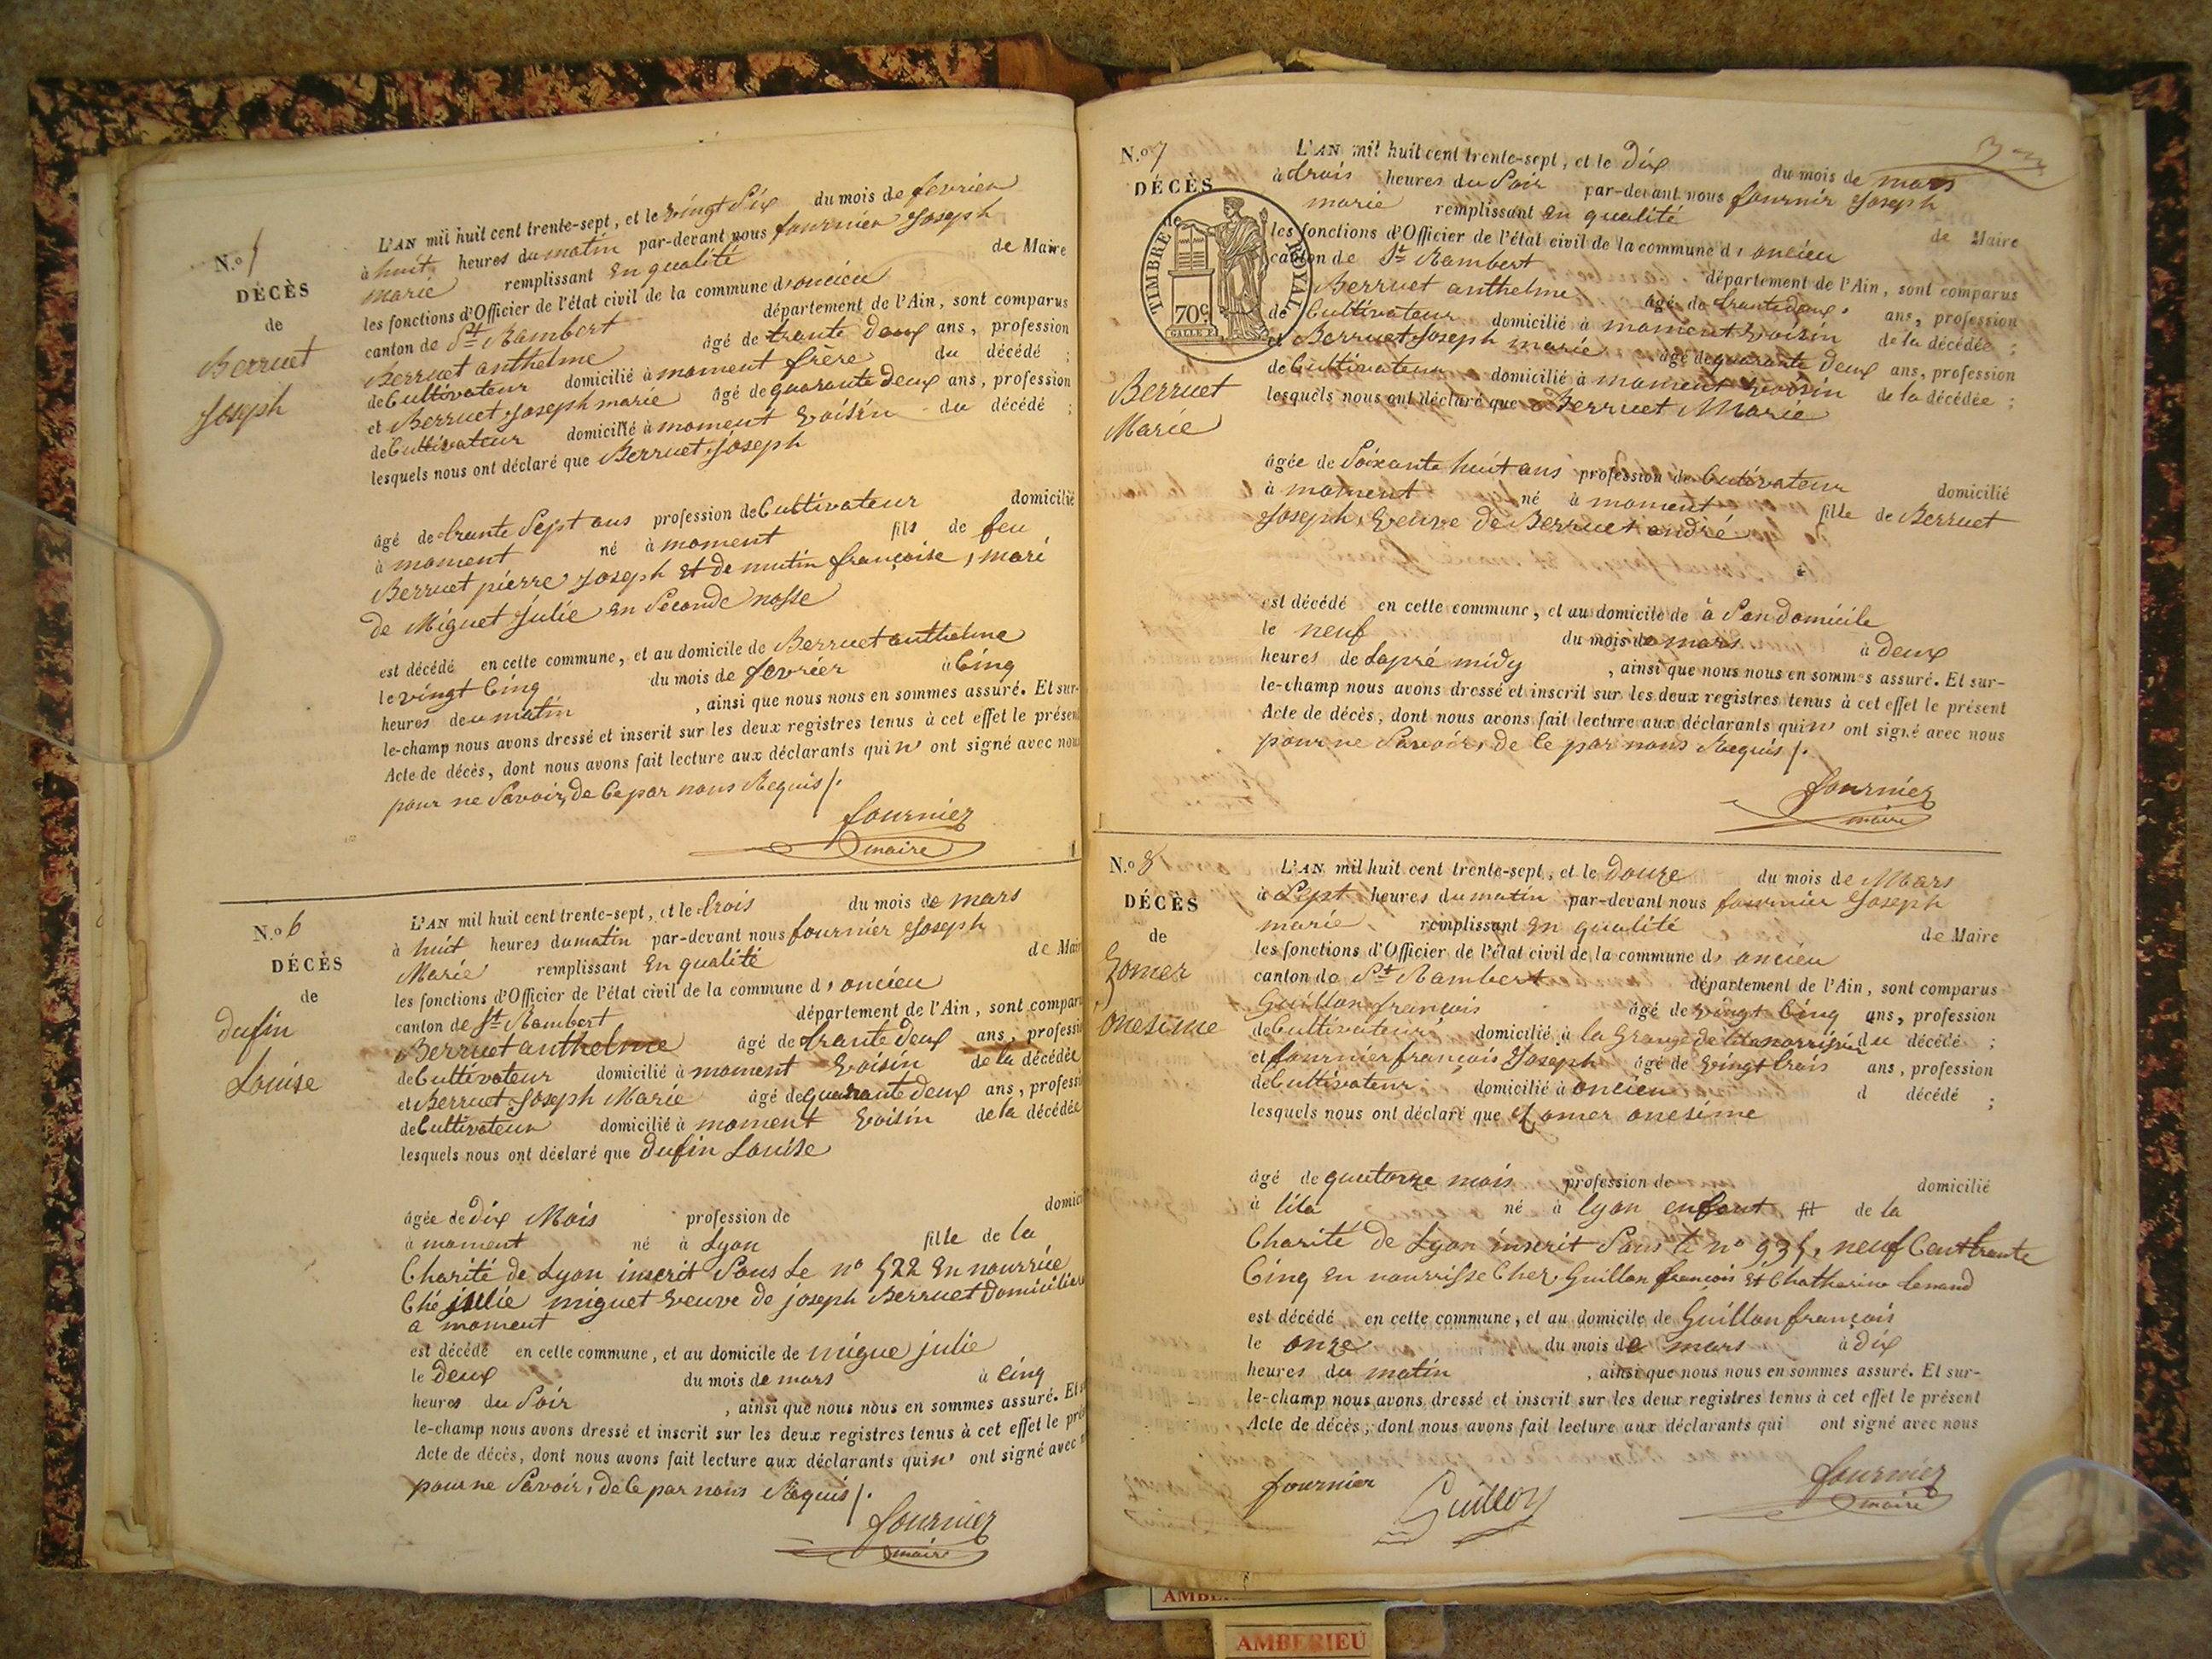 N.º 5
DÉCÈS
de
Berruet
Joseph
L'AN mil huit cent trente-sept, et le vingt Six du mois de fevrier
à huit heures du matin par-devant nous fournier Joseph
marie remplissant En qualité de Maire
les fonctions d'Officier de l'état civil de la commune d'oncieu
canton de St Rambert département de l'Ain, sont comparus
Berruet anthelme âgé de trante deux ans, profession
de Cultivateur domicilié à moment frère du décédé ;
et Berruet Joseph marie âgé de quarante deux ans, profession
de Cultivateur domicilié à moment Voisin du décédé ;
lesquels nous ont déclaré que Berruet Joseph
âgé de trante Sept ans profession de Cultivateur domicilié
à moment né à moment fils de feu
Berruet pierre Joseph Et de mutin françoise, marié
de Miguet Julie en Seconde nosse
est décédé en cette commune, et au domicile de Berruet anthelme
le vingt Cinq du mois de fevrier à Cinq
heures du matin , ainsi que nous nous en sommes assuré. Et sur-
le-champ nous avons dressé et inscrit sur les deux registres tenus à cet effet le présent
Acte de décès, dont nous avons fait lecture aux déclarants qui n' ont signé avec nous
pour ne Savoir, de Ce par nous Requis /.
fournier
maire
N.º 6
DÉCÈS
de
dufin
Louise
L'AN mil huit cent trente-sept, et le trois du mois de mars
à huit heures du matin par-devant nous fournier Joseph
Marie remplissant En qualité de Mair
les fonctions d'Officier de l'état civil de la commune d'oncieu
canton de St Rambert département de l'Ain, sont compar
Berruet anthelme âgé de trante deux ans, professi
de Cultivateur domicilié à moment Voisin de la décédée
et Berruet Joseph Marie âgé de quarante deux ans, professi
de Cultivateur domicilié à moment Voisin de la décédée
lesquels nous ont déclaré que dufin Louise
âgée de dix Mois profession de domici
à moment né à Lyon fille de la
Charité de Lyon inscrit Sous Le nº 522 En nourrice
Ché julie miguet Veuve de joseph Berruet Domiciliée
a moment
est décédé en cette commune, et au domicile de migue julie
le Deux du mois de mars à Cinq
heures du Soir , ainsi que nous nous en sommes assuré. Et
le-champ nous avons dressé et inscrit sur les deux registres tenus à cet effet le pré
Acte de décès, dont nous avons fait lecture aux déclarants qui n' ont signé avec
pour ne Savoir, de Ce par nous Requis /.
fournier
maire
N.º 7
DÉCÈS
de
TIMBRE ROYAL
70 c
Berruet
Marie
L'AN mil huit cent trente-sept, et le dix du mois de mars
à trois heures du Soir par-devant nous fournir Joseph
marie remplissant En qualité de Maire
les fonctions d'Officier de l'état civil de la commune d'oncieu
canton de St Rambert département de l'Ain, sont comparus
Berruet anthelme âgé de trante deux ans, profession
de Cultivateur domicilié à moment Voisin de la décédée ;
et Berruet Joseph marie âgé de quarante deux ans, profession
de Cultivateur domicilié à moment Voisin de la décédée ;
lesquels nous ont déclaré que Berruet Marie
âgée de Soixante huit ans profession de Cultivateur domicilié
à moment né à moment fille de Berruet
Joseph, Veuve de Berruet andré
est décédé en cette commune, et au domicile de à Son domicile
le neuf du mois de mars à deux
heures de Lapré midy , ainsi que nous nous en sommes assuré. Et sur-
le-champ nous avons dressé et inscrit sur les deux registres tenus à cet effet le présent
Acte de décès, dont nous avons fait lecture aux déclarants qui n' ont signé avec nous
pour ne Savoir, de Ce par nous Requis /.
fournier
maire
N.º 8
DÉCÈS
de
Zomer
onesime
L'AN mil huit cent trente-sept, et le Douze du mois de Mars
à Sept heures du matin par-devant nous fournier Joseph
marie remplissant En qualité de Maire
les fonctions d'Officier de l'état civil de la commune d'oncieu
canton de St Rambert département de l'Ain, sont comparus
Guillon françois âgé de vingt Cinq ans, profession
de Cultivateur domicilié à la Grange de lila norrisier du décédé ;
et fournier françois Joseph âgé de Vingt trois ans, profession
de Cultivateur domicilié à oncieu d décédé ;
lesquels nous ont déclaré que Zomer onesime
âgé de quatorze mois profession de domicilié
à lila né à lyon enfant fil de la
Charité de Lyon inscrit Sous le nº 935, neuf Cent trante
Cinq En nourrisse Chez Guillon françois Et Chatherine
est décédé en cette commune, et au domicile de Guillon françois
le onze du mois de mars à dix
heures du matin , ainsi que nous nous en sommes assuré. Et sur-
le-champ nous avons dressé et inscrit sur les deux registres tenus à cet effet le présent
Acte de décès, dont nous avons fait lecture aux déclarants qui ont signé avec nous
fournier
Guillon
fournier
maire
AMBERIEU